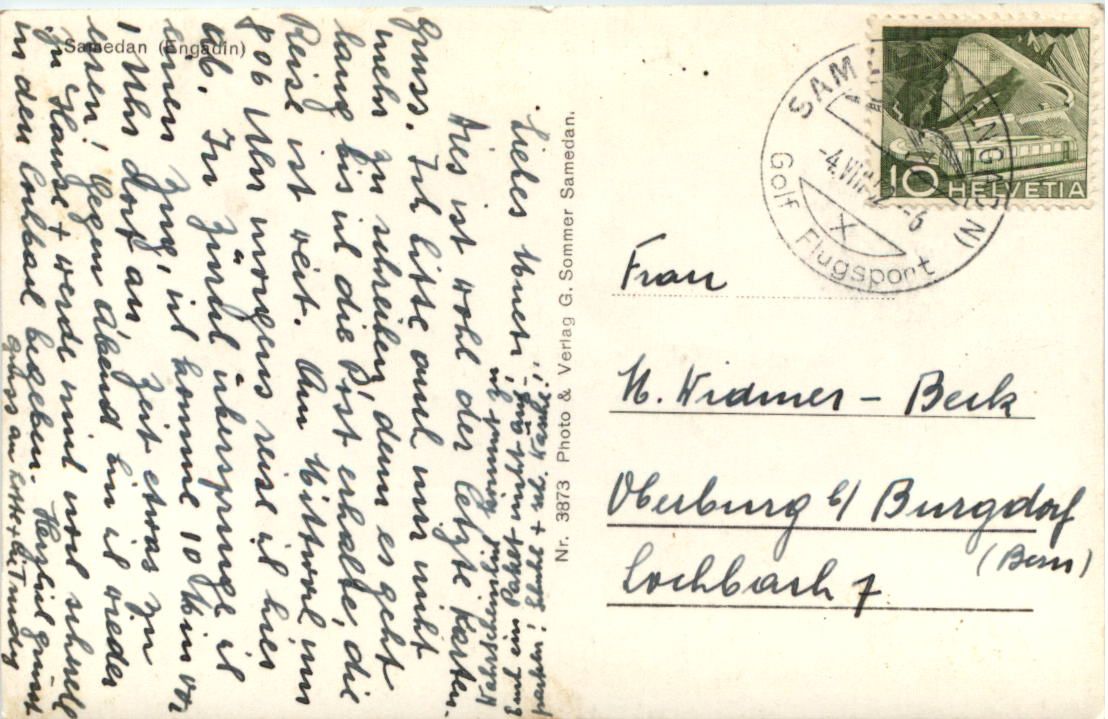 Samedan (Engadin)
Liebes Mueti!
Dies ist wohl der letzte Karten-
gruss. Ich bitte auch mir nicht
mehr zu schreiben, denn es geht
lang bis ich die Post erhalte, die
Reise ist weit. Am Mittwoch um
906 Uhr morgens reise ich hier
ab. In Zürich überspringe ich
einen Zug, ich komme 10 Min vor
1 Uhr dort an, Zeit etwas zu
essen! Gegen Abend bin ich wieder
zu Hause + werde mich noch schnell
in den Lochbach begeben. Herzlich grüsst
Nr. 3873 Photo & Verlag G. Sommer Samedan.
SAMEDAN (ENGADIN)
Golf Flugsport
X
10 HELVETIA
Frau
M. Widmer - Beck
Oberburg b/ Burgdorf
(Bern)
Lochbach 7